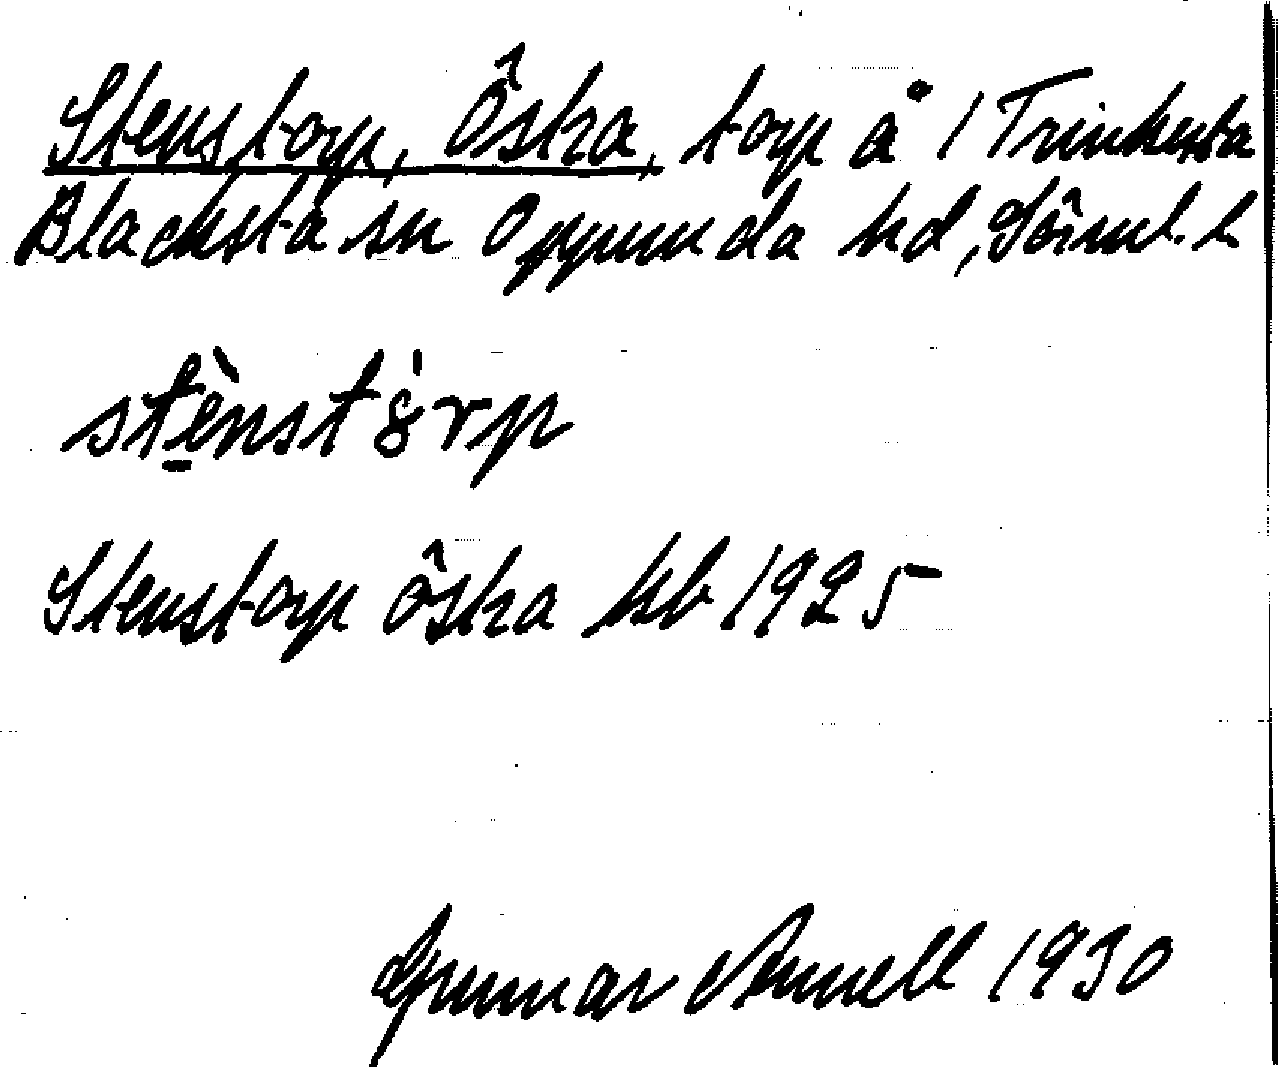 Stenstorp, Östra, torp å 1 Trinkesta
Blacksta sn Oppunda hd, Sörml. l.
stè̱nstȯ̀rp
Stenstorp östra kb 1925
Gunnar Annell 1930